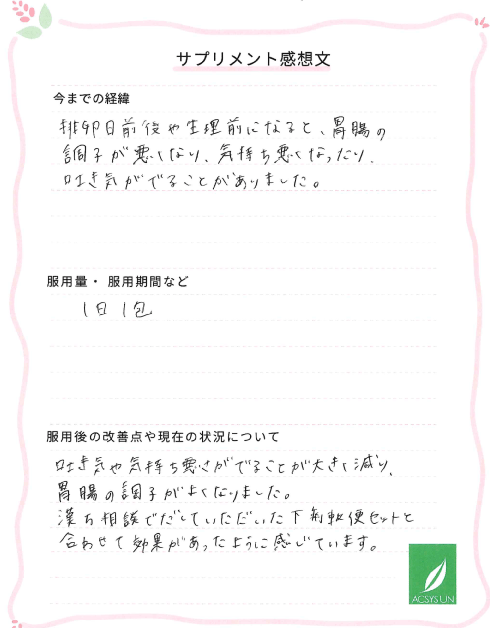 サプリメント感想文
今までの経緯
排卵日前後や生理前になると、胃腸の
調子が悪くなり、気持ち悪くなったり、
吐き気がでることがありました。
服用量・ 服用期間など
1日1包
服用後の改善点や現在の状況について
吐き気や気持ち悪さがでることが大きく減り、
胃腸の調子がよくなりました。
漢方相談でだしていただいた下痢軟便セットと
合わせて効果があったように感じています。
ACSYSUN